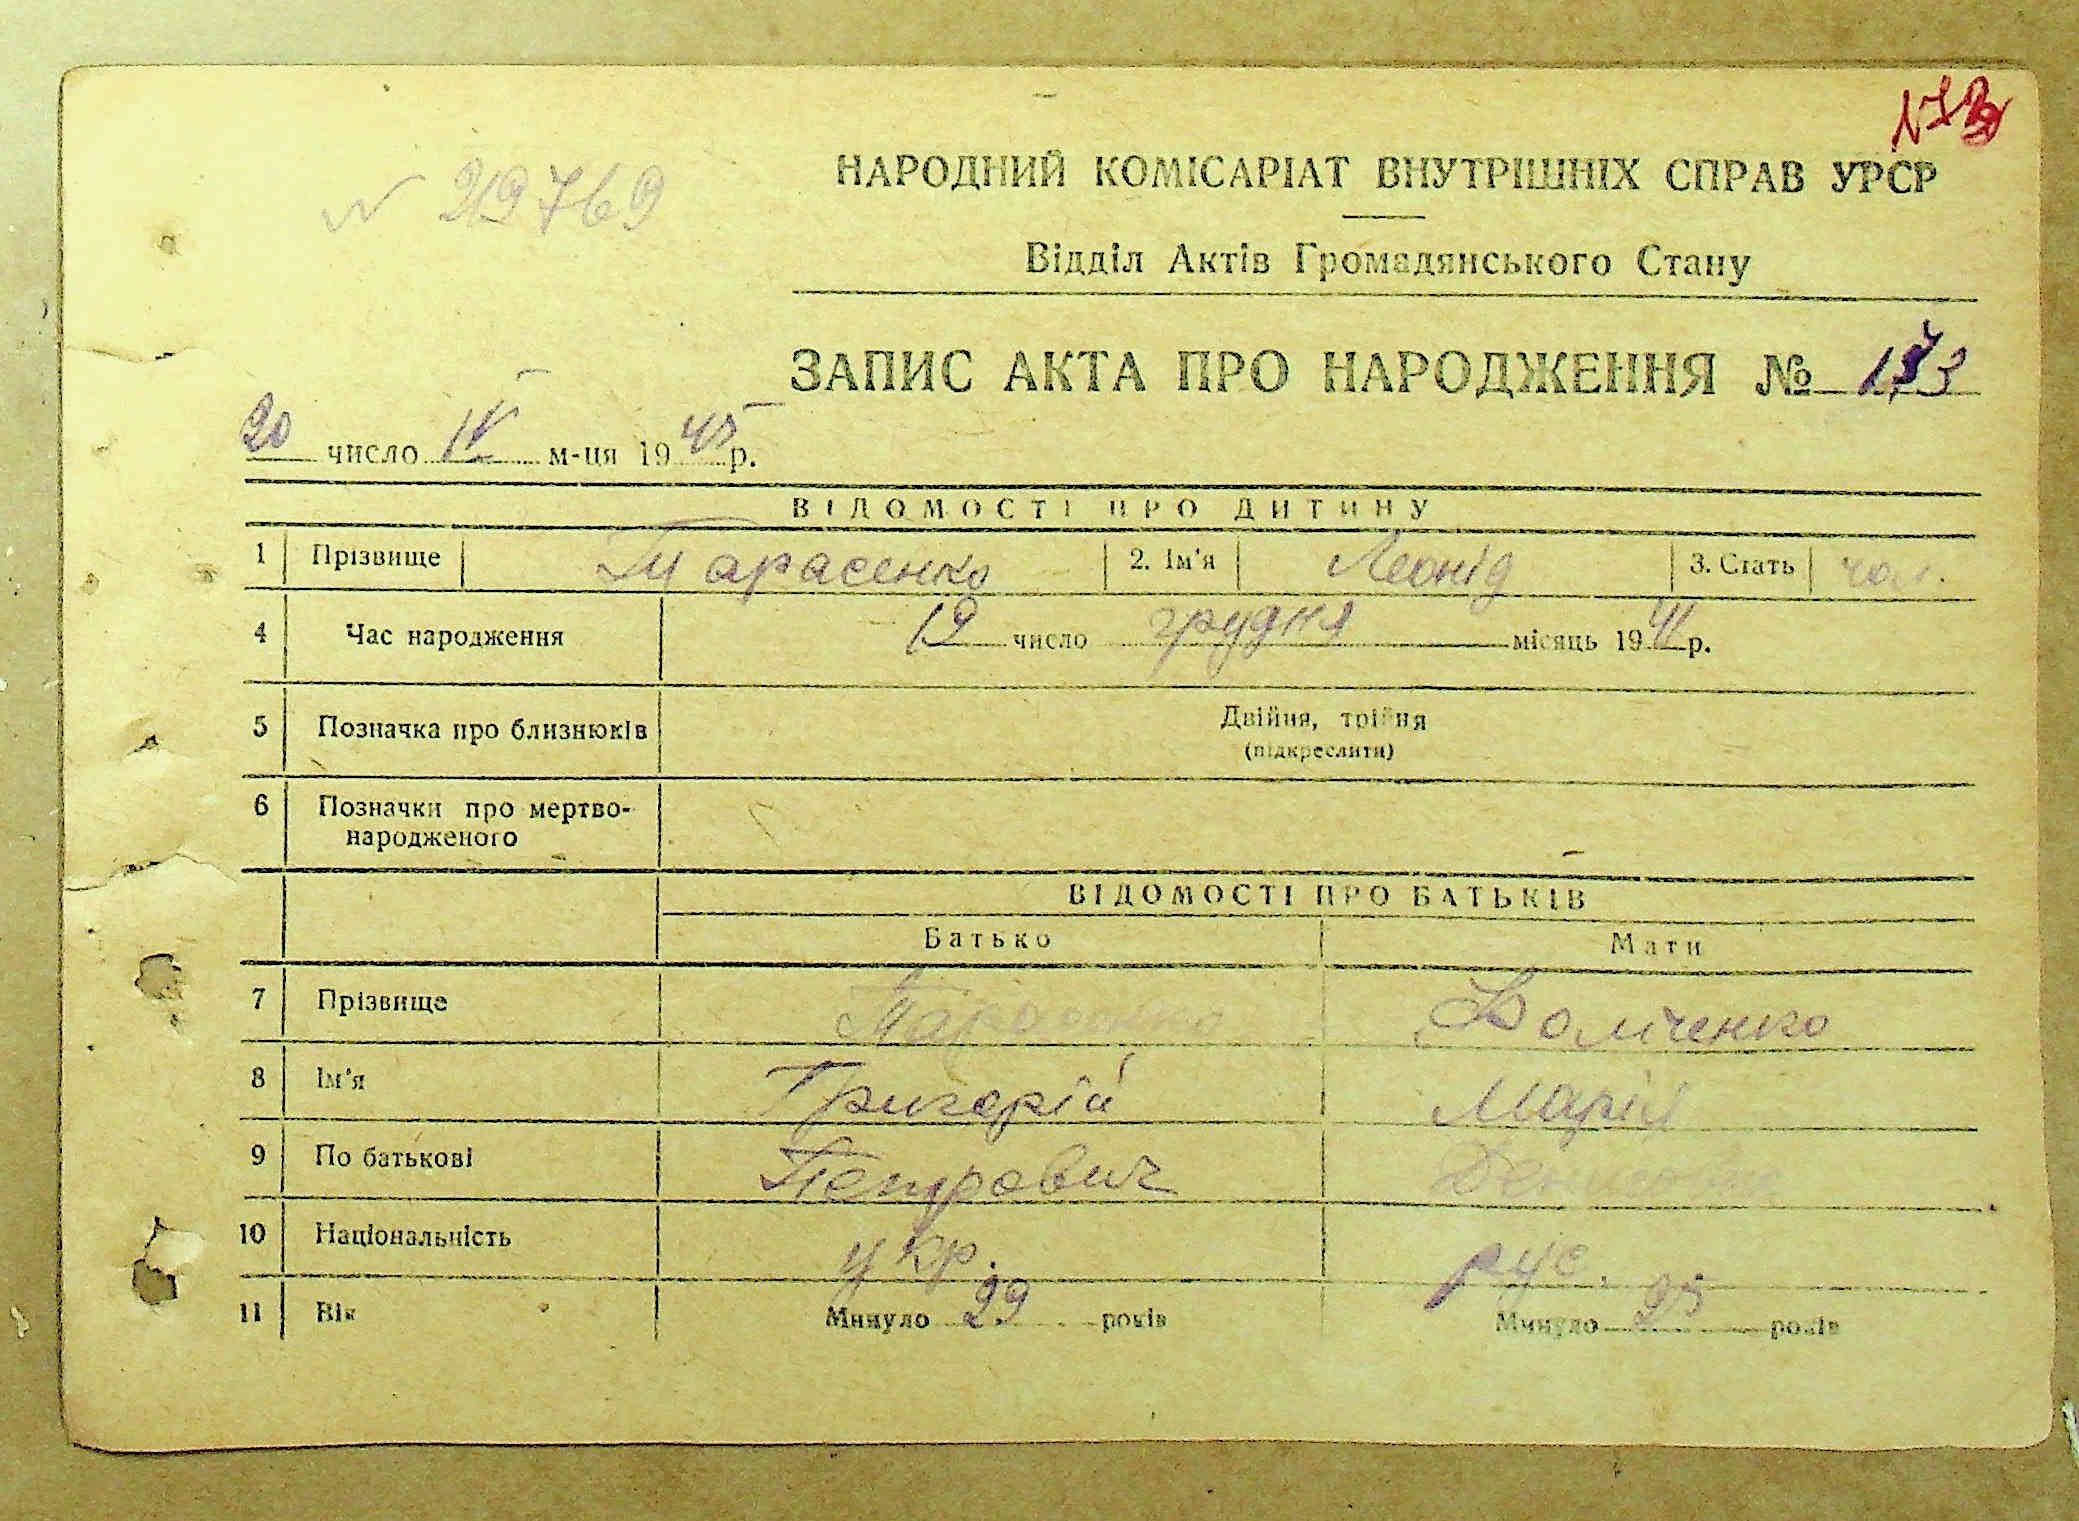 № 29769
НАРОДНИЙ КОМІСАРІАТ ВНУТРІШНІХ СПРАВ УРСР
Відділ Актів Громадянського Стану
ЗАПИС АКТА ПРО НАРОДЖЕННЯ № 173
20 число IV м-ця 1945 р.
ВІДОМОСТІ ПРО ДИТИНУ
1 Прізвище Тарасенко 2. Ім'я Леонід 3. Стать чол.
4 Час народження 19 число грудня місяць 1941 р.
5 Позначка про близнюків Двійня, трійня
(підкреслити)
6 Позначки про мертво-
народженого
ВІДОМОСТІ ПРО БАТЬКІВ
Батько Мати
7 Прізвище Тарасенко
8 Ім'я Григорій Марія
9 По батькові Петрович
10 Національність укр. рус.
11 Вік Минуло 29 років Минуло 25 років